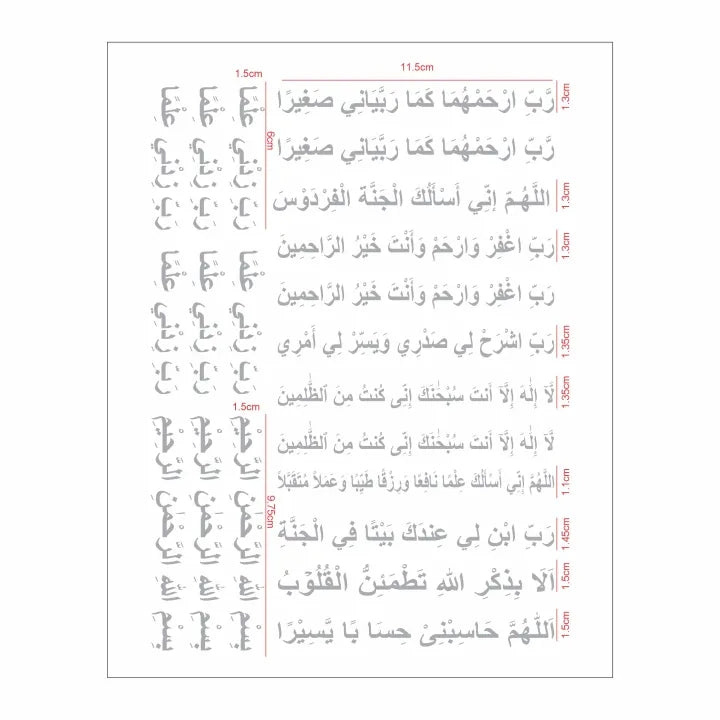 11.5cm
1.5cm
رَّبِّ ارْحَمْهُمَا كَمَا رَبَّيَانِي صَغِيرًا
1.3cm
رَّبِّ ارْحَمْهُمَا كَمَا رَبَّيَانِي صَغِيرًا
اللَّهُمَّ إنِّي أَسْأَلُكَ الْجَنَّةَ الْفِرْدَوْسَ
1.3cm
رَبِّ اغْفِرْ وَارْحَمْ وَأَنْتَ خَيْرُ الرَّاحِمِينَ
1.3cm
رَبِّ اغْفِرْ وَارْحَمْ وَأَنْتَ خَيْرُ الرَّاحِمِينَ
رَبِّ اشْرَحْ لِي صَدْرِي وَيَسِّرْ لِي أَمْرِي
1.35cm
لَّا إِلَٰهَ إِلَّا أَنتَ سُبْحَٰنَكَ إِنِّى كُنتُ مِنَ ٱلظَّٰلِمِينَ
1.35cm
لَّا إِلَٰهَ إِلَّا أَنتَ سُبْحَٰنَكَ إِنِّى كُنتُ مِنَ ٱلظَّٰلِمِينَ
اللَّهُمَّ إِنِّي أَسْأَلُكَ عِلْمًا نَافِعًا وَرِزْقًا طَيِّبًا وَعَمَلاً مُتَقَبَّلاً
1.1cm
رَبِّ ابْنِ لِي عِندَكَ بَيْتًا فِي الْجَنَّةِ
1.45cm
اَلَا بِذِكْرِ اللهِ تَطْمَئِنُّ الْقُلُوْبُ
1.5cm
اَللّٰهُمَّ حَاسِبْنِىْ حِسَا بًا يَّسِيْرًا
1.5cm
رَبِّ زِدْنِي عِلْمًا
رَبِّ زِدْنِي عِلْمًا
رَبِّ زِدْنِي عِلْمًا
6cm
رَبِّ زِدْنِي عِلْمًا
رَبِّ زِدْنِي عِلْمًا
رَبِّ زِدْنِي عِلْمًا
1.5cm
بِسْمِ اللهِ الرَّحْمٰنِ الرَّحِيْمِ
بِسْمِ اللهِ الرَّحْمٰنِ الرَّحِيْمِ
بِسْمِ اللهِ الرَّحْمٰنِ الرَّحِيْمِ
9.75cm